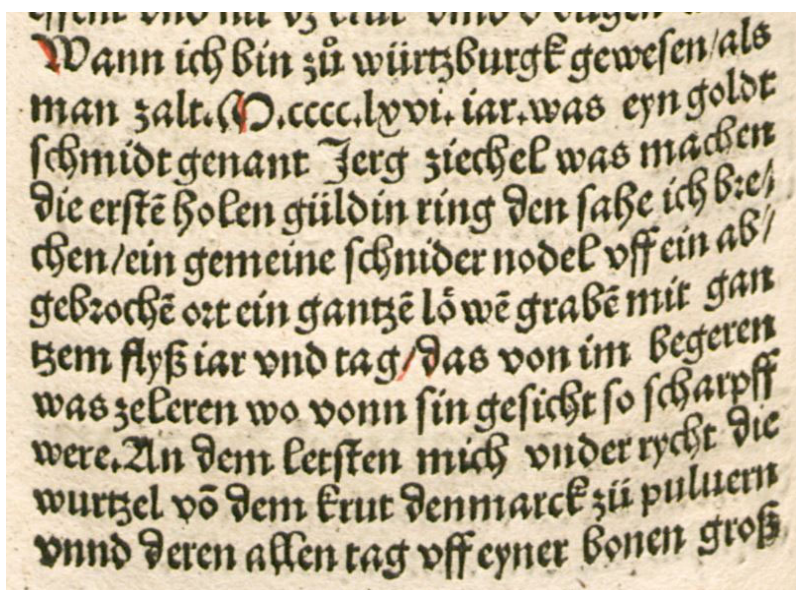 Wann ich bin zů würtzburgk gewesen/als
man zalt.M.cccc.lxvi.iar.was eyn goldt
schmidt genant Jerg ziechel was machen
die erstē holen güldin ring den sahe ich bre/
chen/ein gemeine schnider nodel vff ein ab/
gebrochē ort ein gantzē löwē grabē mit gan
tzem flyß iar vnd tag/das von im begeren
was zeleren wo vonn sin gesicht so scharpff
were.An dem letsten mich vnder rycht die
wurtzel vō dem krut denmarck zü puluern
vnnd deren allen tag vff eyner bonen groß